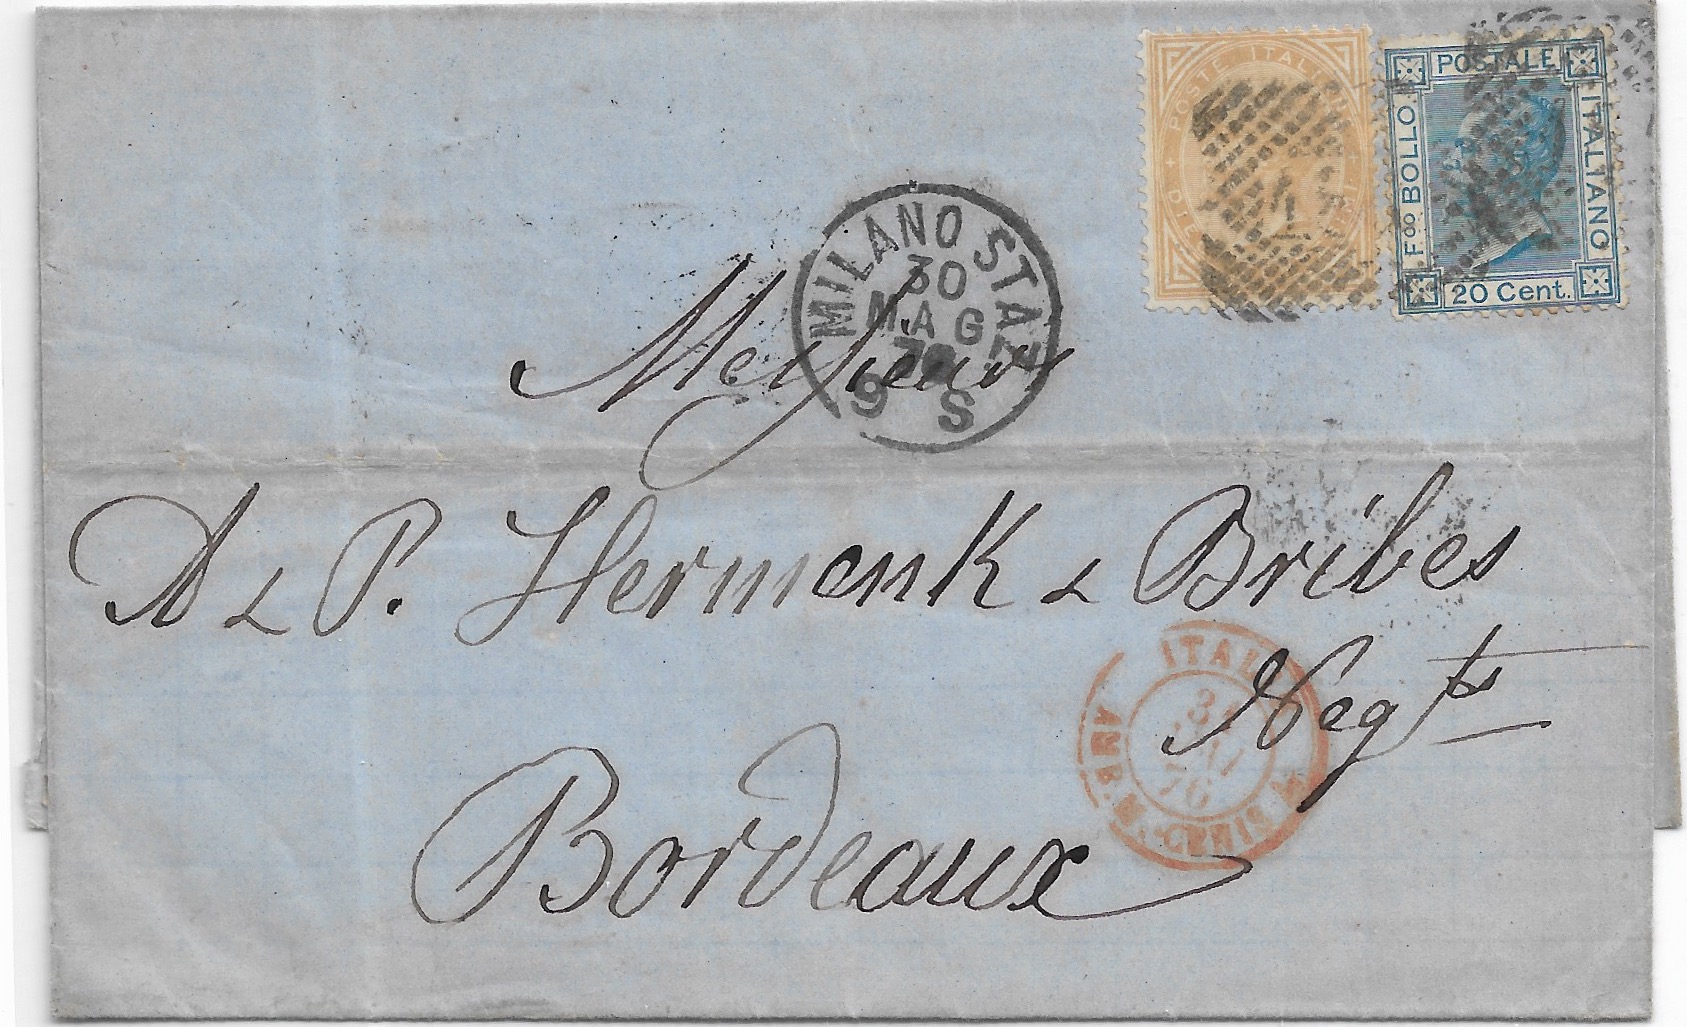 POSTE ITALIANE
POSTALE
F.co BOLLO
ITALIANO
20 Cent.
MILANO STAZ
30
MAG
76
9 S
Messieurs
A & P. Hermenk & Bribes
Negts
Bordeaux
ITALIE
31
MAI
76
AMB. M. CENIS M